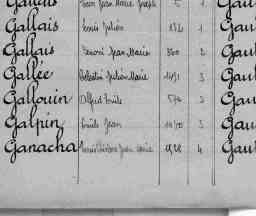 Gallais Jean Marie Joseph 5 1 Gau
Gallais Louis Julien 1 Gaul
Gallais Jean Marie 360 2 Gaul
Gallée Célestin Julien Marie 1491 3 Gaul
Gallouin Alfred Emile 576 3 Gau
Galpin Emile Jean 3 Gau
Ganacha Jean Marie 1928 4 Gaul